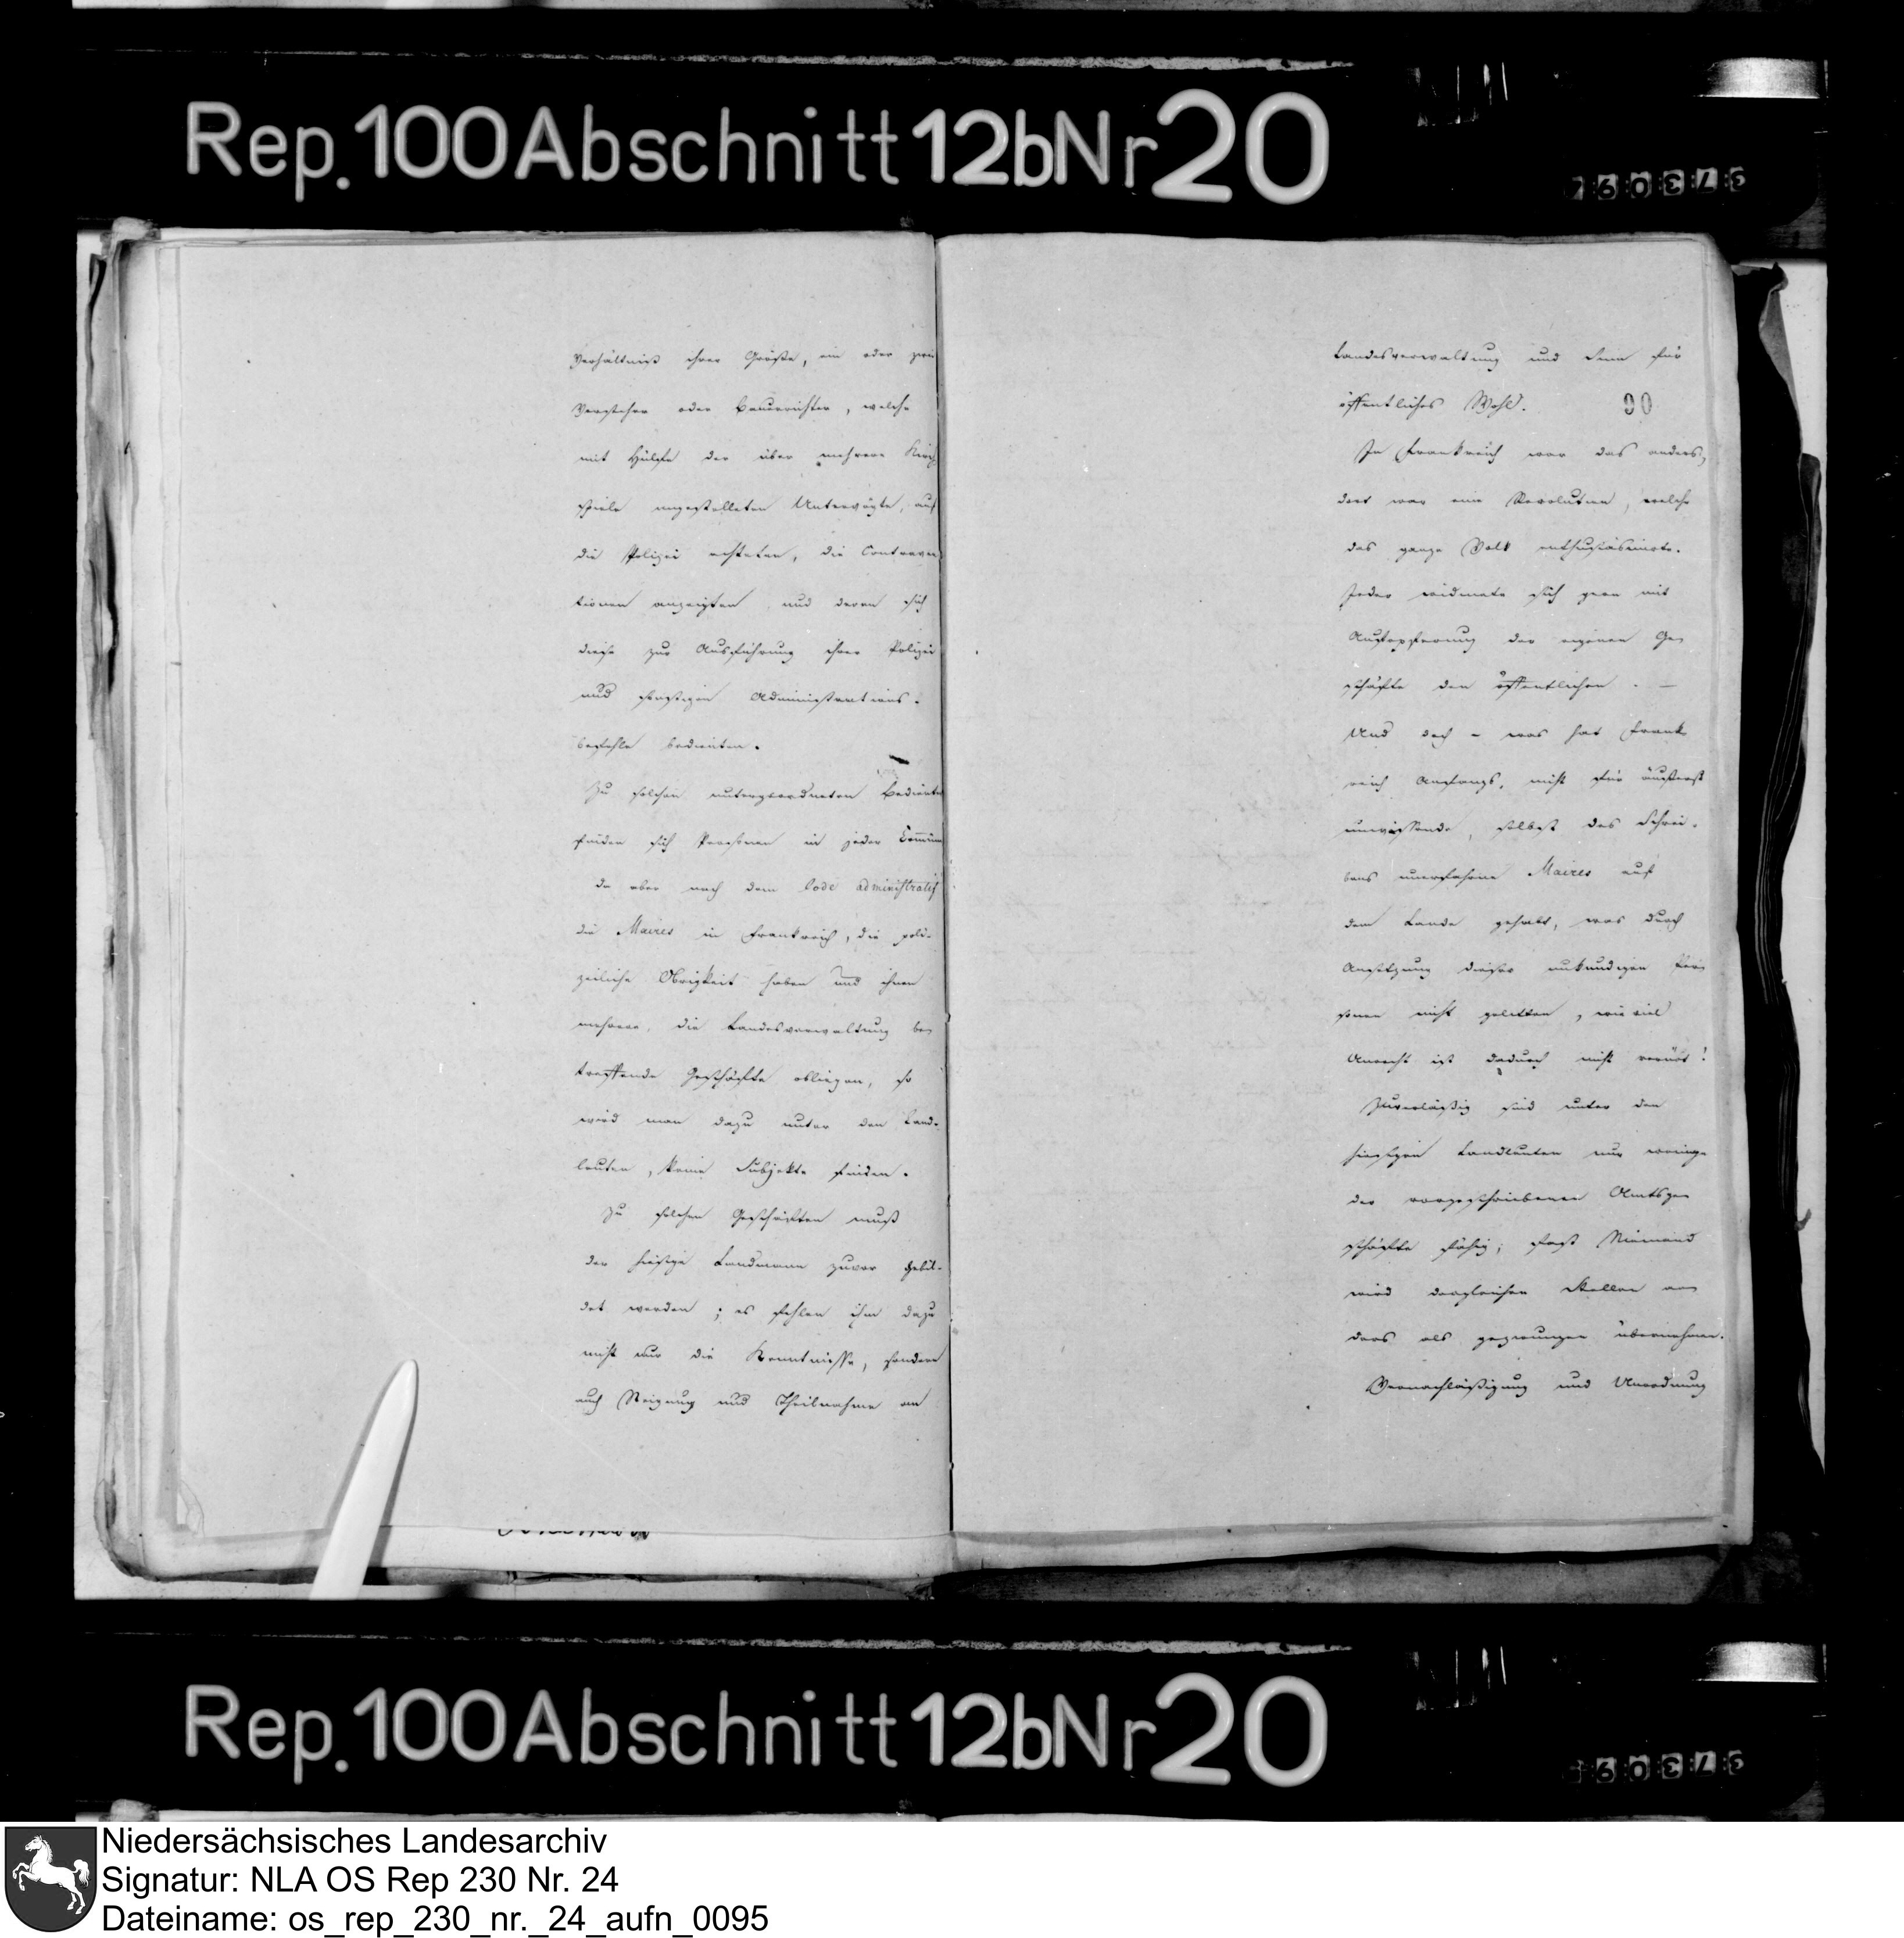 Rep. 100 Abschnitt 12b Nr 20
Verhältniß ihrer Größe, ein oder zwei
Vorsteher oder Bauerrichter, welche
mit Hülfe der über mehrere Kirch
spiele angestelleten Untervögte, auf
die Polizei achteten, die Contraven
tionen anzeigten und deren sich
diese zur Ausführung ihrer Polizei
und sonstigen Administrations-
befehle bedienten.
Zu solchen untergeordneten Bedienten
finden sich Personen in jeder Commun
da aber nach dem Code administratif
die Maires in Frankreich, die poli-
zeiliche Obrigkeit haben und ihnen
mehrere, die Landesverwaltung be
treffende Geschäfte obliegen, so
wird man dazu unter den Land-
leuten, keine Subjekte finden.
Zu solchen Geschäften muß
der hiesige Landmann zuvor gebil-
det werden; es fehlen ihm dazu
nicht nur die Kenntnisse, sondern
auch Neigung und Theilnahme an
Landesverwaltung und Sinn für
öffentliches Wohl.
90
In Frankreich war das anders,
dort war eine Revolution, welche
das ganze Volk enthusiasmirte.
Jeder widmete sich gern mit
Aufopferung der eigenen Ge
schäfte den öffentlichen. —
Und doch – was hat Frank
reich Anfangs, nicht für äußerst
unwissende, selbst des Schrei-
bens unerfahrne Maires auf
dem Lande gehabt, was durch
Ansetzung dieser unkundigen Per
sonen nicht gelitten, wie viel
Unrecht ist dadurch nicht verübt!
Zuverläßig sind unter den
hiesigen Landleuten nur wenige
der vorgeschriebenen Amtsge
schäfte fähig; fast Niemand
wird dergleichen Stellen an
ders als gezwungen übernehmen.
Vernachläßigung und Unordnung
Rep. 100 Abschnitt 12b Nr 20
Niedersächsisches Landesarchiv
Signatur: NLA OS Rep 230 Nr. 24
Dateiname: os_rep_230_nr._24_aufn_0095